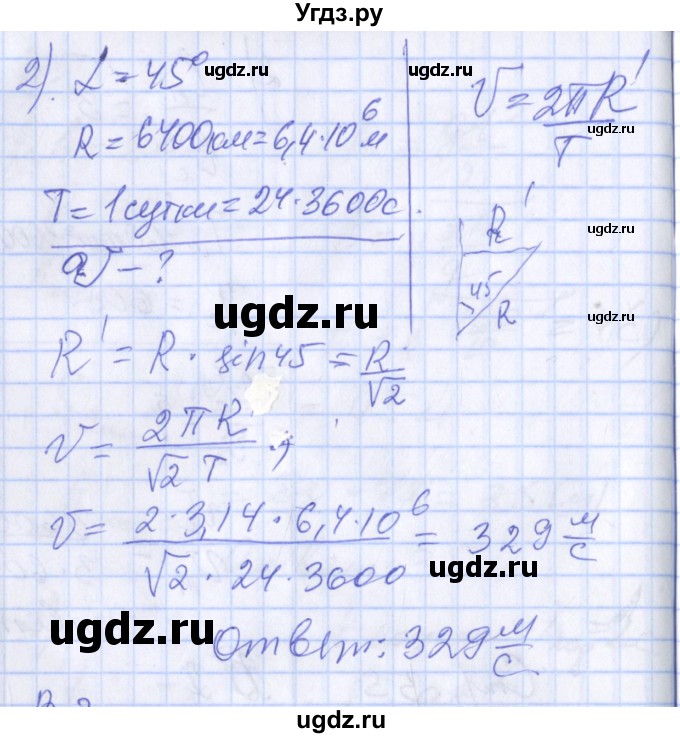 Угдз.ру
2). α = 45° ugdz.ru ugdz.ru V = 2πR'/T
R = 6400км = 6,4·10⁶м ugdz.ru
T = 1 сутки = 24·3600с.
V – ? R' ugdz.ru
45 R
ugdz.ru ugdz.ru
R' = R · sin45 = R/√2
V = 2πR/√2 T ;
V = 2·3,14·6,4·10⁶/√2·24·3600 = 329 м/с
ugdz.ru
ugdz.ru Ответ: 329 м/с
ugdz.ru
ugdz.ru